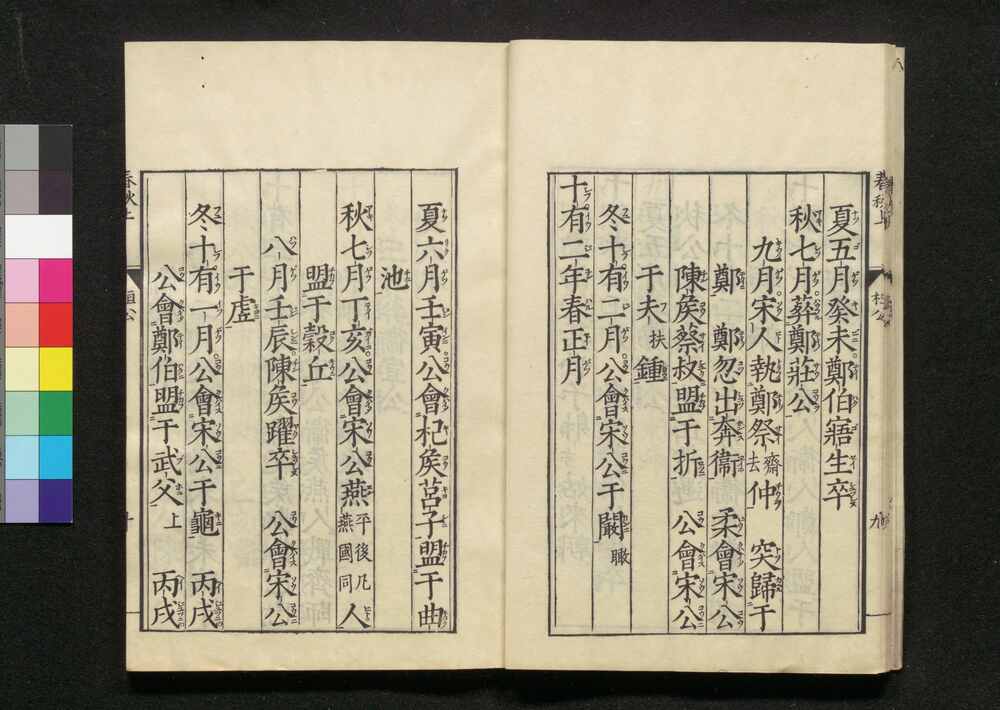 夏五月癸未鄭伯寤生卒
秋七月葬鄭莊公
九月宋人執鄭祭齋去仲　突歸于
鄭　鄭忽出奔衞　柔會宋公
陳矦蔡叔盟于折　公會宋公
于夫扶鍾
冬十有二月公會宋公于闞瞰
十有二年春正月
夏六月壬寅公會杞矦莒子盟于曲
池
秋七月丁亥公會宋公燕平後凡燕國同人
盟于穀丘
八月壬辰陳矦躍卒　公會宋公
于虛
冬十有一月公會宋公于龜　丙戌
公會鄭伯盟于武父上　丙戌
春秋上
桓公
九
春秋上
桓公
十